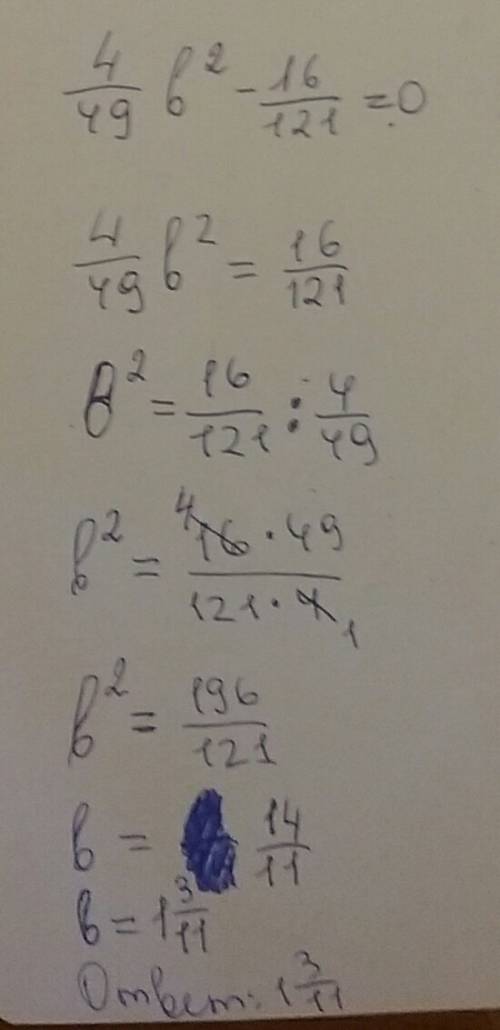 4/49 b² - 16/121 = 0
4/49 b² = 16/121
b² = 16/121 : 4/49
b² = 4 16 · 49 / 121 · 4 1
b² = 196/121
b = 14/11
b = 1 3/11
Ответ: 1 3/11